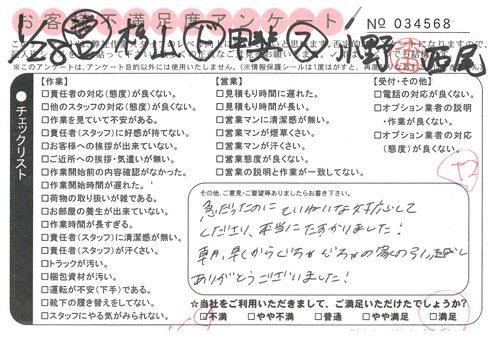 お客様不満足度アンケート
No 034568
1/28
杉山 下 甲斐 ス 小野
チェックリスト
【作業】
□責任者の対応(態度)が良くない。
□他のスタッフの対応(態度)が良くない。
□作業を見ていて不安がある。
□責任者(スタッフ)に好感が持てない。
□お客様への挨拶が出来ていない。
□ご近所への挨拶・気遣いが無い。
□作業開始前の内容確認がなかった。
□作業開始時間が遅れた。
□荷物の取り扱いが雑である。
□お部屋の養生が出来ていない。
□作業時間が長すぎる。
□責任者(スタッフ)に清潔感が無い。
□責任者(スタッフ)が汗くさい。
□トラックが汚い。
□梱包資材が汚い。
□運転が不安(下手)である。
□靴下の履き替えをしてない。
□スタッフにやる気がみられない。
【営業】
□見積もり時間に遅れた。
□見積もり時間が長い。
□営業マンに清潔感が無い。
□営業マンが煙草くさい。
□営業マンが汗くさい。
□営業態度が良くない。
□営業の説明と作業が一致してない。
【受付・その他】
□電話の対応が良くない。
□オプション業者の説明
・作業が良くない。
□オプション業者の対応
(態度)が良くない。
その他、ご意見・ご要望等ありましたらお書き下さい。
急だったのにていねいな対応して
くださり、本当にたすかりました!
朝、早くからぐちゃぐちゃの家の引っ越し
ありがとうございました!
☆当社をご利用いただきまして、ご満足いただけたでしょうか?
□不満 □やや不満 □普通 □やや満足 □満足